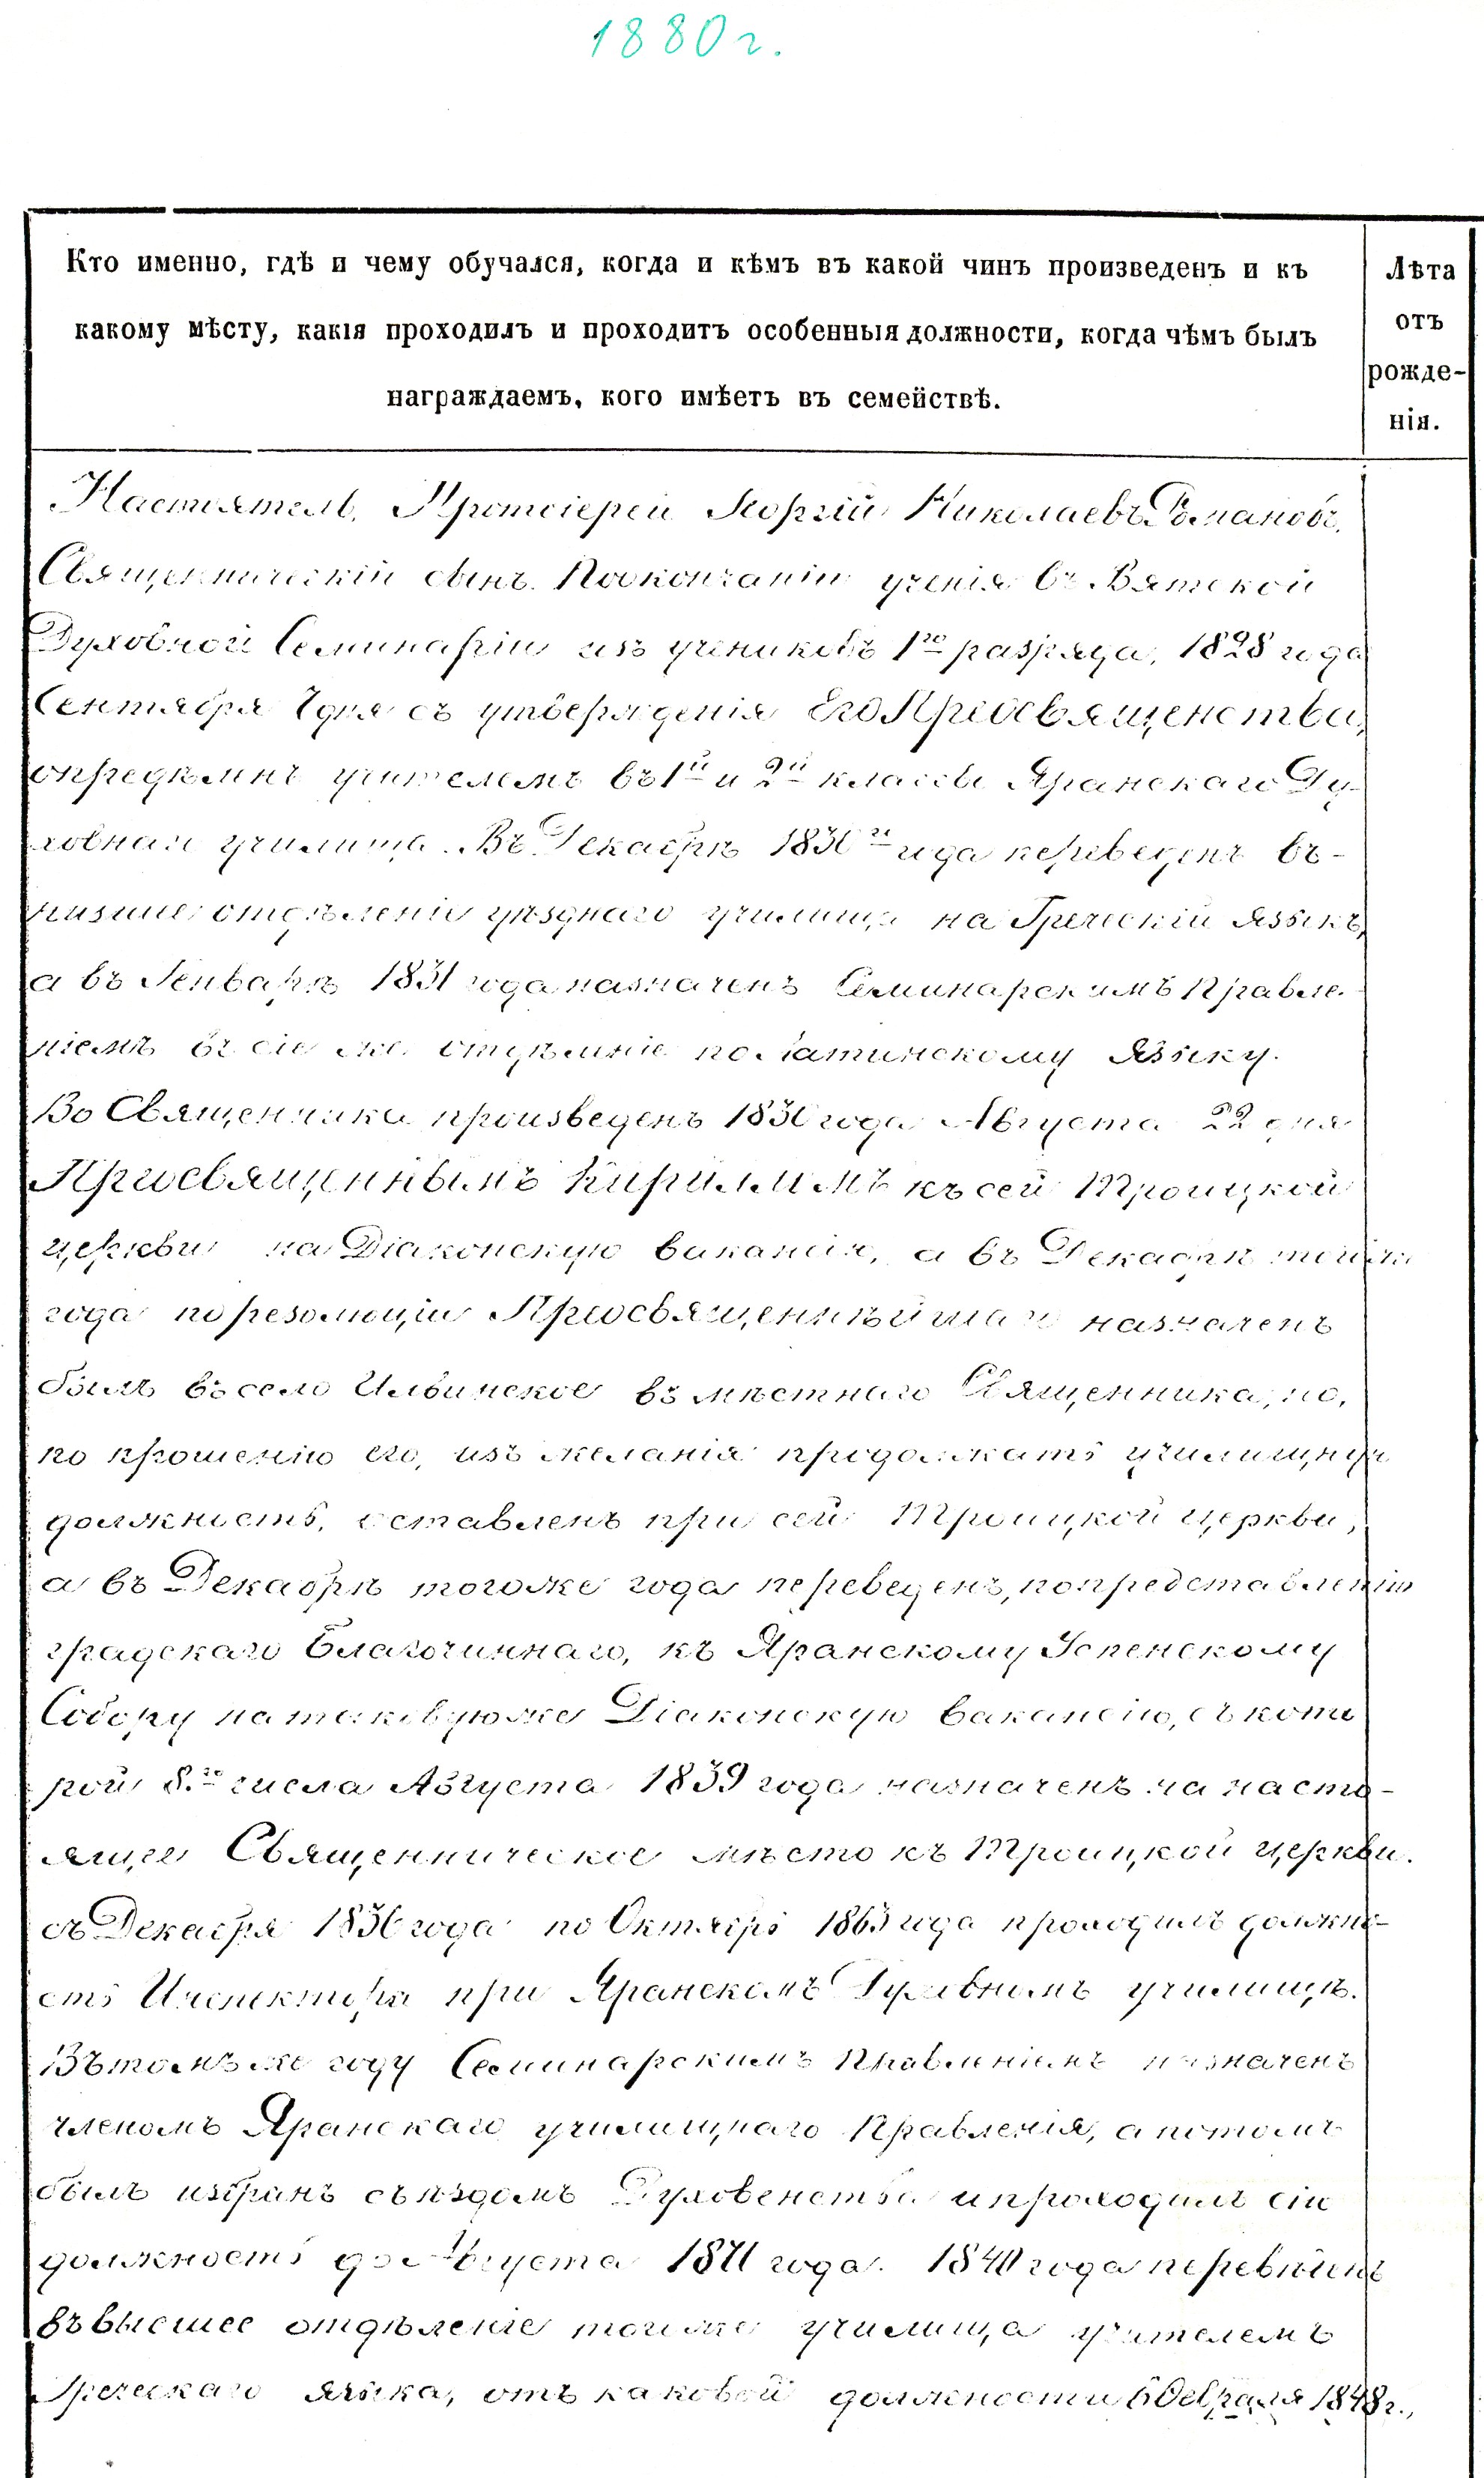 1880 г.
Кто именно, гдѣ и чему обучался, когда и кѣмъ въ какой чинъ произведенъ и къ
какому мѣсту, какія проходилъ и проходитъ особенныя должности, когда чѣмъ былъ
награждаемъ, кого имѣетъ въ семействѣ.
Лѣта
отъ
рожде-
нія.
Настоятель, Протоіерей Георгій Николаевъ Романовъ,
Священническій сынъ. По окончаніи ученія въ Вятской
Духовной Семинаріи изъ учениковъ 1го разряда, 1828 года
Сентября дня съ утвержденія Его Преосвященства,
опредѣленъ учителемъ въ 1й и 2й классы Яранскаго Ду-
ховнаго училища. Въ Декабрѣ 1830го года переведенъ въ-
низшее отдѣленіе уѣзднаго училища на Греческій языкъ,
а въ Генварѣ 1831 года назначенъ Семинарскимъ Правле-
ніемъ въ сіе же отдѣленіе по Латинскому языку.
Во Священника произведенъ года Августа 22 дня
Преосвященнымъ Кирилломъ къ сей Троицкой
церкви на Діаконскую вакансію, а въ Декабрѣ тогоже
года по резолюціи Преосвященнѣйшаго назначенъ
былъ въ село Ильинское въ мѣстнаго Священника, но,
по прошенію его, изъ желанія продолжать училищную
должность, оставленъ при сей Троицкой церкви,
а въ Декабрѣ тогоже года переведенъ, по представленію
градскаго Благочиннаго, къ Яранскому Успенскому
Собору на таковуюже Діаконскую вакансію, съ кото
рой 8го числа Августа 1839 года назначенъ на насто-
ящее Священническое мѣсто къ Троицкой церкви.
съ Декабря 1836 года по Октябрь 1863 года проходилъ должно-
сть Инспектора при Яранскомъ Духовномъ училищѣ.
Въ томъ же году Семинарскимъ Правленіемъ назначенъ
членомъ Яранскаго училищнаго Правленія, а потомъ
былъ избранъ съѣздомъ Духовенства и проходилъ сію
должность до Августа 1871 года. 1840 года переведенъ
въ высшее отдѣленіе тогоже училища учителемъ
Греческаго языка, отъ каковой должности 6 Февраля 1848 г.,